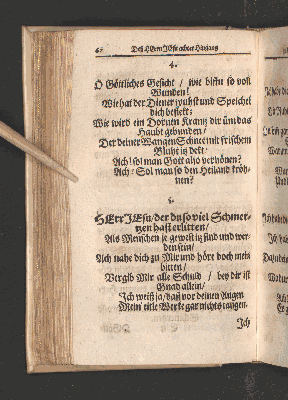 62 Deß HErrn JEsu achter Hingang
4.
O Göttliches Gesicht / wie bistu so voll
Wunden!
Wie hat der Diener und Speichel
dich befleckt;
Wie wird ein Dornen Krantz dir umb das
Haubt gebunden /
Der deiner Wangen Schnee mit frischem
Bluht
Ach! sol man Gott also verhönen?
Ach! Sol man so den Heiland kröh-
nen?
5.
HErr JEsu / der du so viel Schmer-
tzen hast erlitten /
Als Menschen je gewest sind und wer-
den sein /
Ach nahe dich zu Mir und hör doch mein
bitten /
Vergib Mir alle Schuld / bey dir ist
Gnad allein /
Ich weiß ja / daß vor deinen Augen
Mein' eitle Werke gar nichts taugen.
Ich